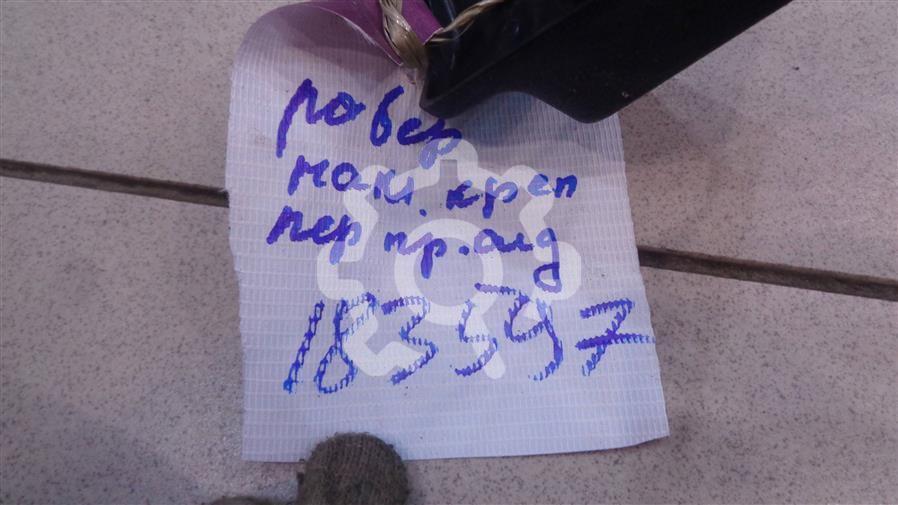 ровер
накл. креп
пер пр. сид
183597